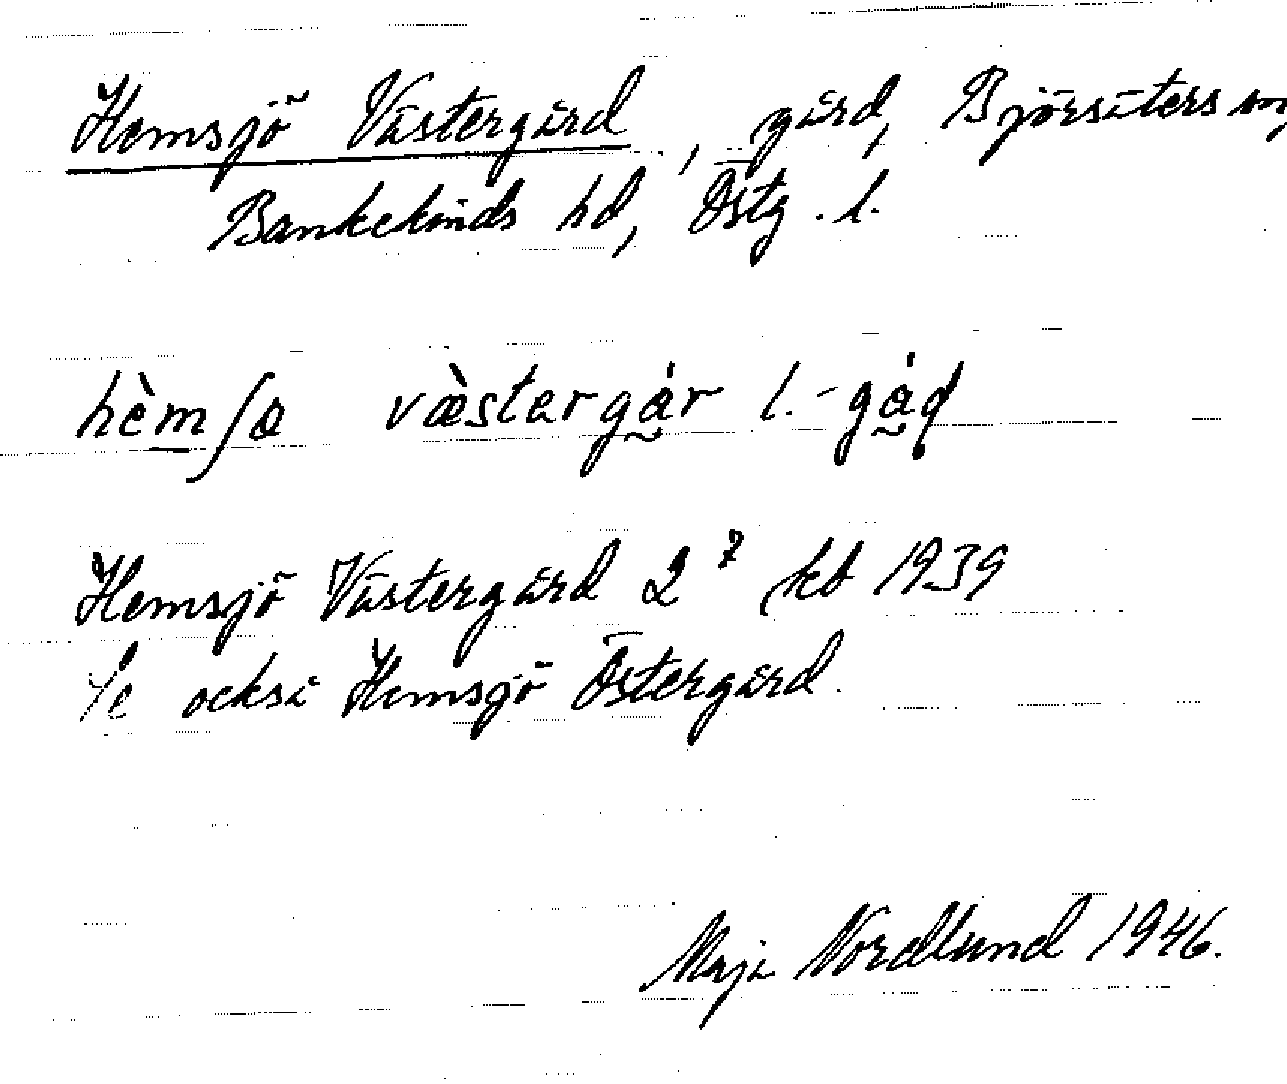 Hemsjö Västergård, gård, Björsäters sn,
Bankekinds hd, Östg. l.
hèmʃæ væ̀stərgår l. -gåɖ
Hemsjö Västergård 2⁷ kb 1939
Se också Hemsjö Östergård.
Maja Nordlund 1946.